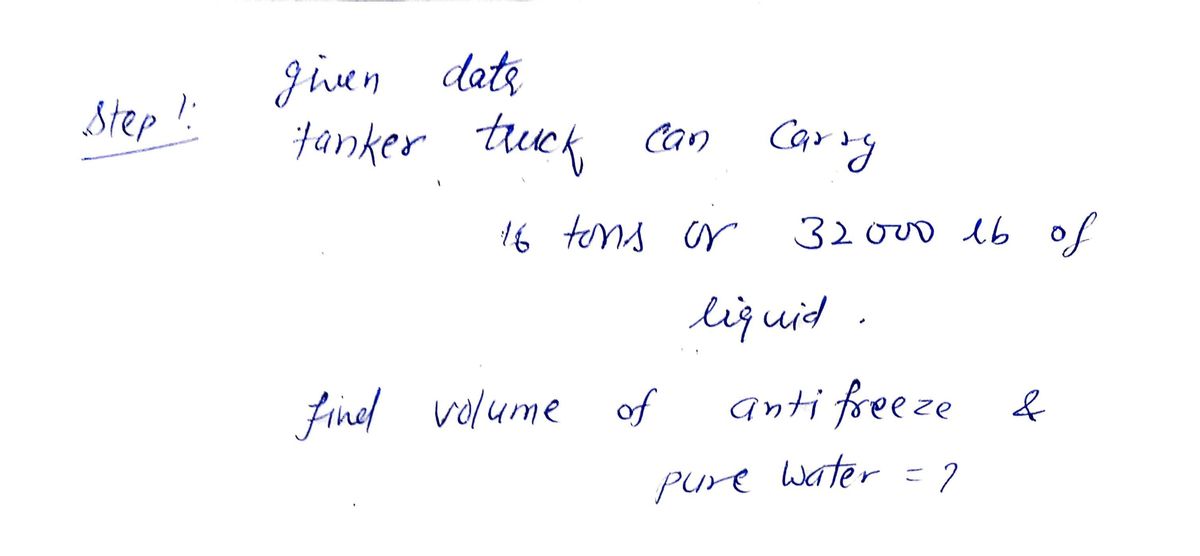 given data
Step 1:
tanker truck can carry
16 tons or 32000 lb of
liquid .
find volume of antifreeze &
pure water = ?